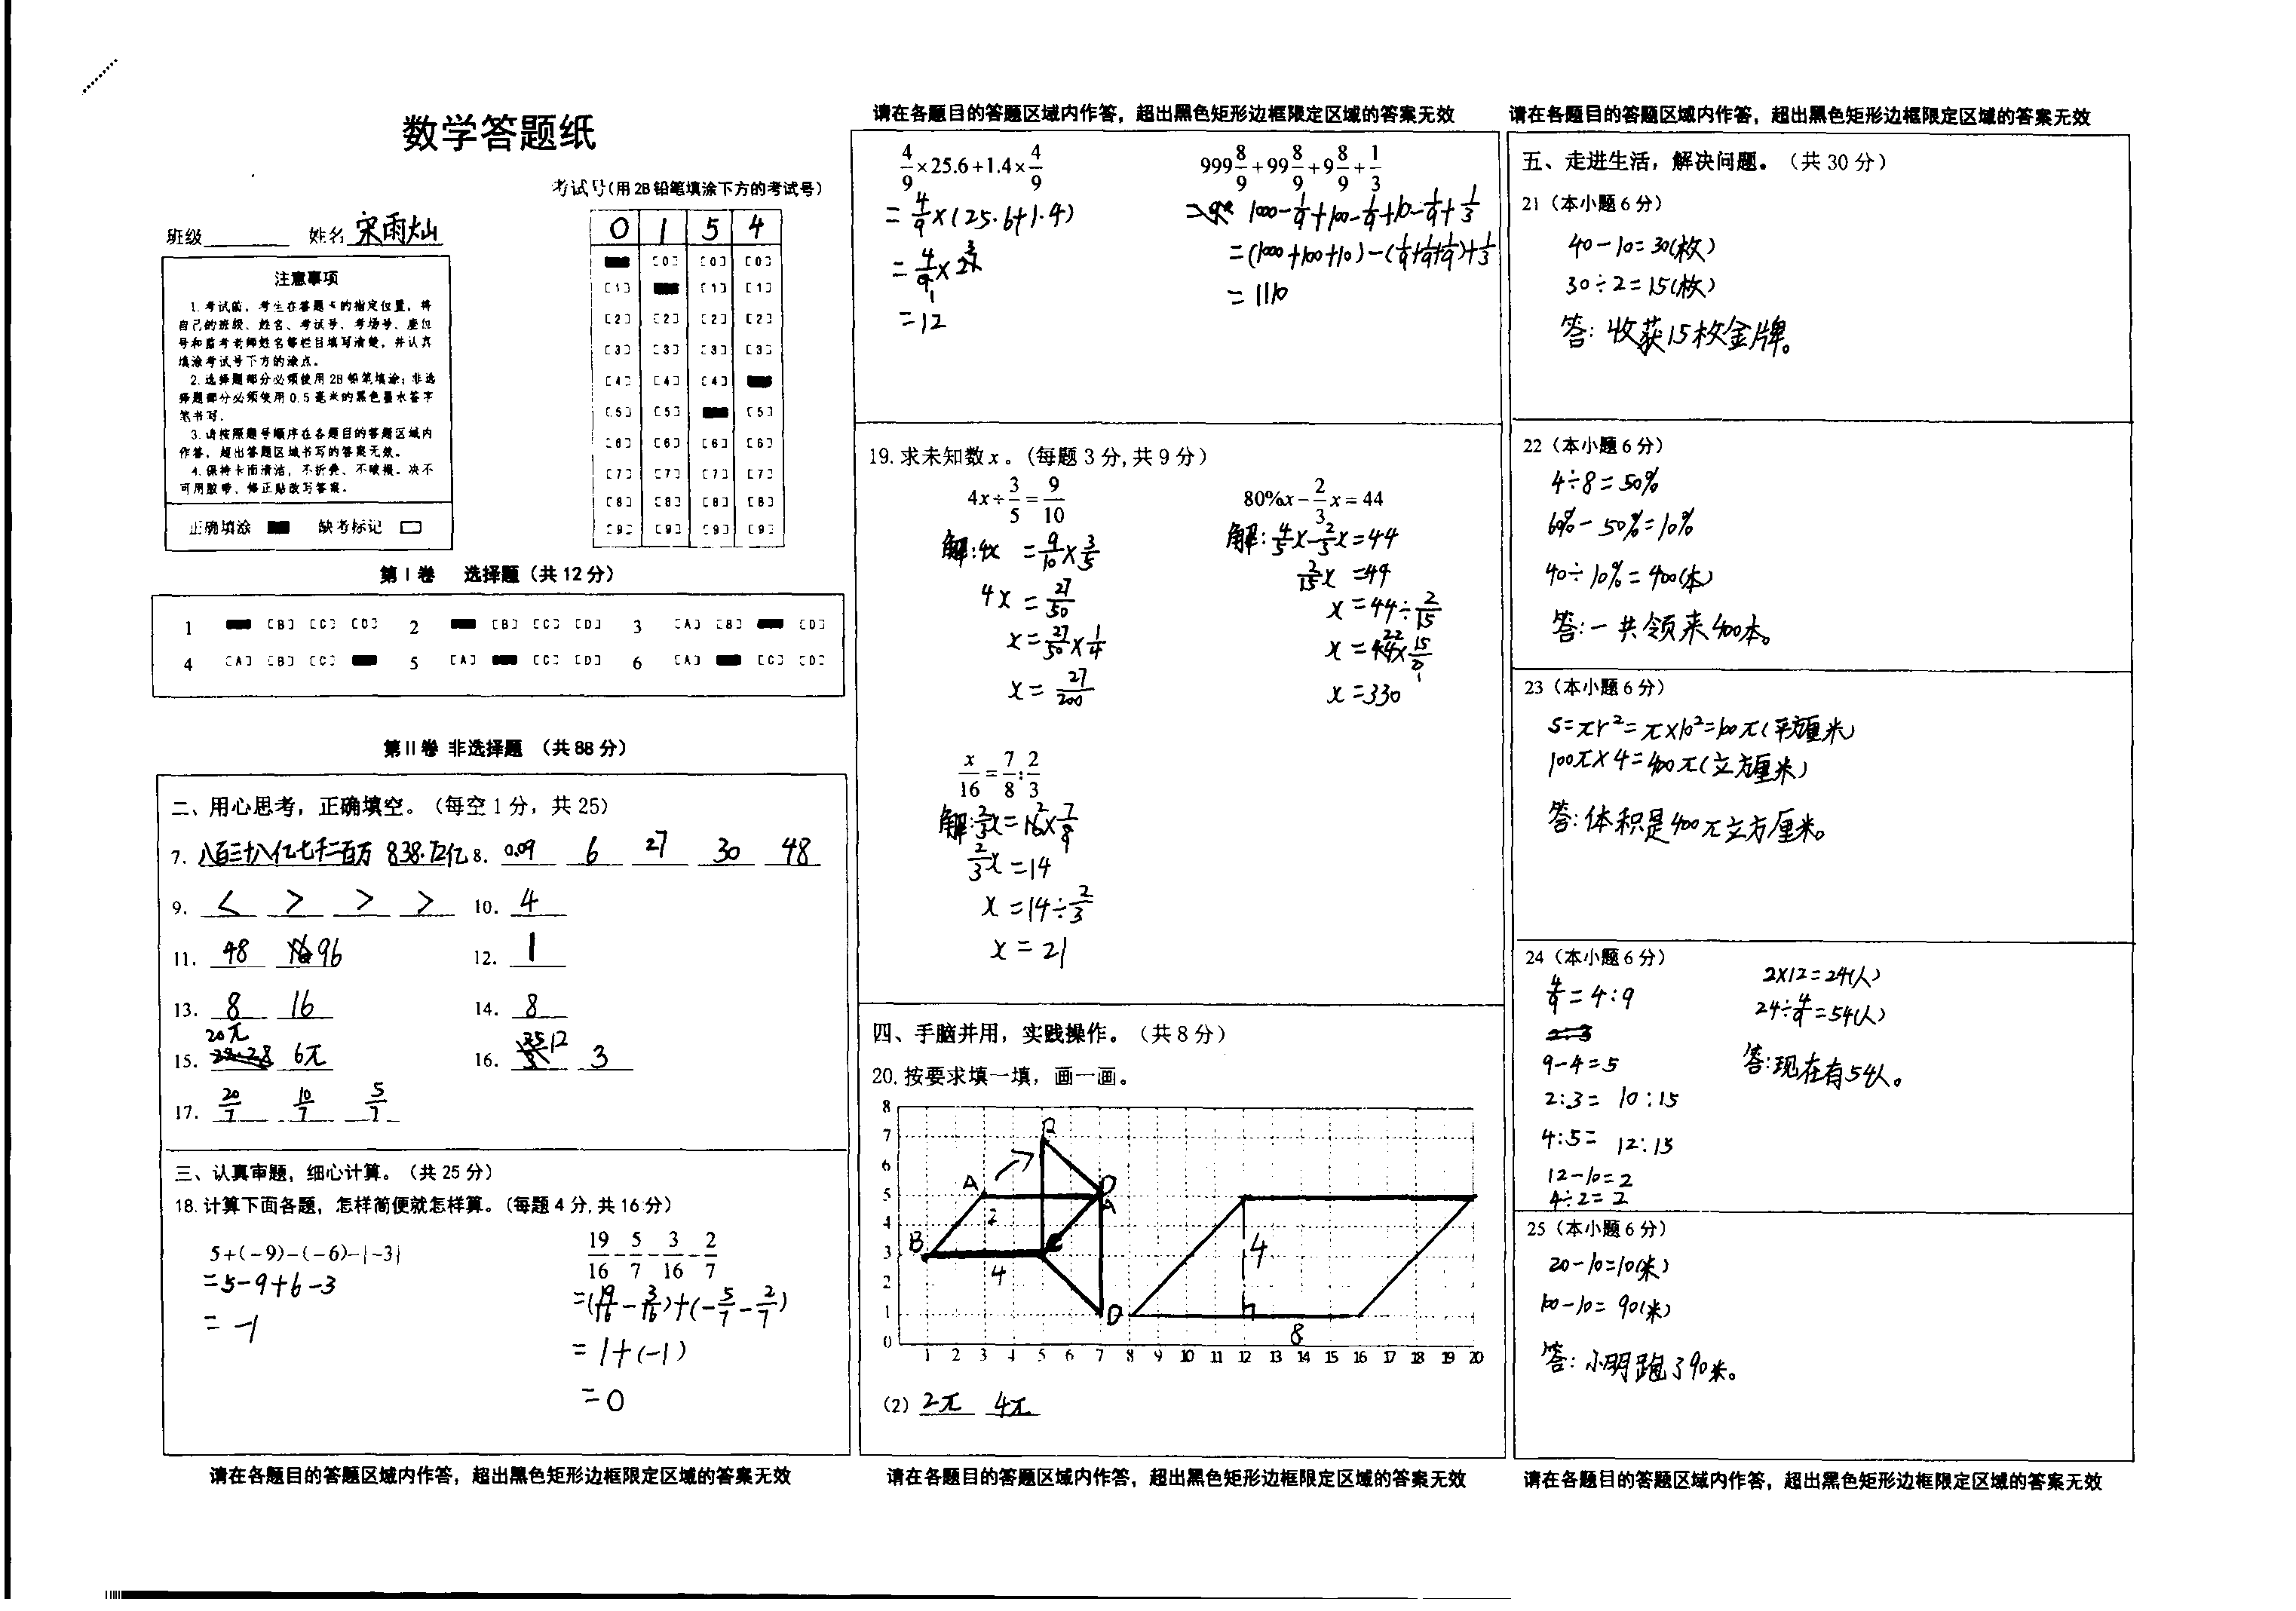 数学答题纸
考试号(用2B铅笔填涂下方的考试号)
班级 姓名 宋雨灿
0 1 5 4
[0] [0] [0]
[1] [1] [1]
[2] [2] [2] [2]
[3] [3] [3] [3]
[4] [4] [4]
[5] [5] [5]
[6] [6] [6] [6]
[7] [7] [7] [7]
[8] [8] [8] [8]
[9] [9] [9] [9]
注意事项
1.考试前,考生在答题卡的指定位置,将
自己的班级、姓名、考试号、考场号、座位
号和监考老师姓名等栏目填写清楚,并认真
填涂考试号下方的涂点。
2.选择题部分必须使用2B铅笔填涂;非选
择题部分必须使用0.5毫米的黑色墨水签字
笔书写.
3.请按照题号顺序在各题目的答题区域内
作答,超出答题区域书写的答案无效。
4.保持卡面清洁,不折叠、不破损。决不
可用胶带、修正贴改写答案。
正确填涂 缺考标记
第Ⅰ卷 选择题(共12分)
1 [B] [C] [D] 2 [B] [C] [D] 3 [A] [B] [D]
4 [A] [B] [C] 5 [A] [C] [D] 6 [A] [C] [D]
第Ⅱ卷 非选择题 (共88分)
二、用心思考,正确填空。(每空1分,共25)
7. 八百三十八亿七千二百万 838.72亿 8. 0.09 6 27 30 48
9. < > > > 10. 4
11. 48 96 12. 1
13. 8 16 14. 8
15. 20π 6π 16. 12 3
17. 20/7 10/7 5/7
三、认真审题,细心计算。(共25分)
18.计算下面各题,怎样简便就怎样算。(每题4分,共16分)
5+(-9)-(-6)-|-3|
=5-9+6-3
=-1
19/16-5/7-3/16-2/7
=(19/16-3/16)+(-5/7-2/7)
=1+(-1)
=0
请在各题目的答题区域内作答,超出黑色矩形边框限定区域的答案无效
请在各题目的答题区域内作答,超出黑色矩形边框限定区域的答案无效
4/9×25.6+1.4×4/9
=4/9×(25.6+1.4)
=4/9×27 3 1
=12
999 8/9+99 8/9+9 8/9+1/3
= 1000-1/9+100-1/9+10-1/9+1/3
=(1000+100+10)-(1/9+1/9+1/9)+1/3
=1110
19.求未知数x。(每题3分,共9分)
4x÷3/5=9/10
解:4x =9/10×3/5
4x=27/50
x=27/50×1/4
x=27/200
80%x-2/3x=44
解:4/5x-2/3x=44
2/15x =44
x=44÷2/15
x=44×15/2 22 1
x=330
x/16=7/8:2/3
解:2/3x=16×7/8 2
2/3x=14
x=14÷2/3
x=21
四、手脑并用,实践操作。(共8分)
20.按要求填一填,画一画。
8
7 B
6
5 A D A
4 2 4
3 B C
2 4
1 D
0 8
1 2 3 4 5 6 7 8 9 10 11 12 13 14 15 16 17 18 19 20
(2) 2π 4π
请在各题目的答题区域内作答,超出黑色矩形边框限定区域的答案无效
请在各题目的答题区域内作答,超出黑色矩形边框限定区域的答案无效
五、走进生活,解决问题。(共30分)
21(本小题6分)
40-10=30(枚)
30÷2=15(枚)
答:收获15枚金牌。
22(本小题6分)
4÷8=50%
60%-50%=10%
40÷10%=400(本)
答:一共领来400本。
23(本小题6分)
S=πr²=π×10²=100π(平方厘米)
100π×4=400π(立方厘米)
答:体积是400π立方厘米。
24(本小题6分)
4/9=4:9
9-4=5
2:3= 10:15
4:5= 12:15
12-10=2
4÷2=2
2×12=24(人)
24÷4/9=54(人)
答:现在有54人。
25(本小题6分)
20-10=10(米)
100-10=90(米)
答:小明跑了90米。
请在各题目的答题区域内作答,超出黑色矩形边框限定区域的答案无效